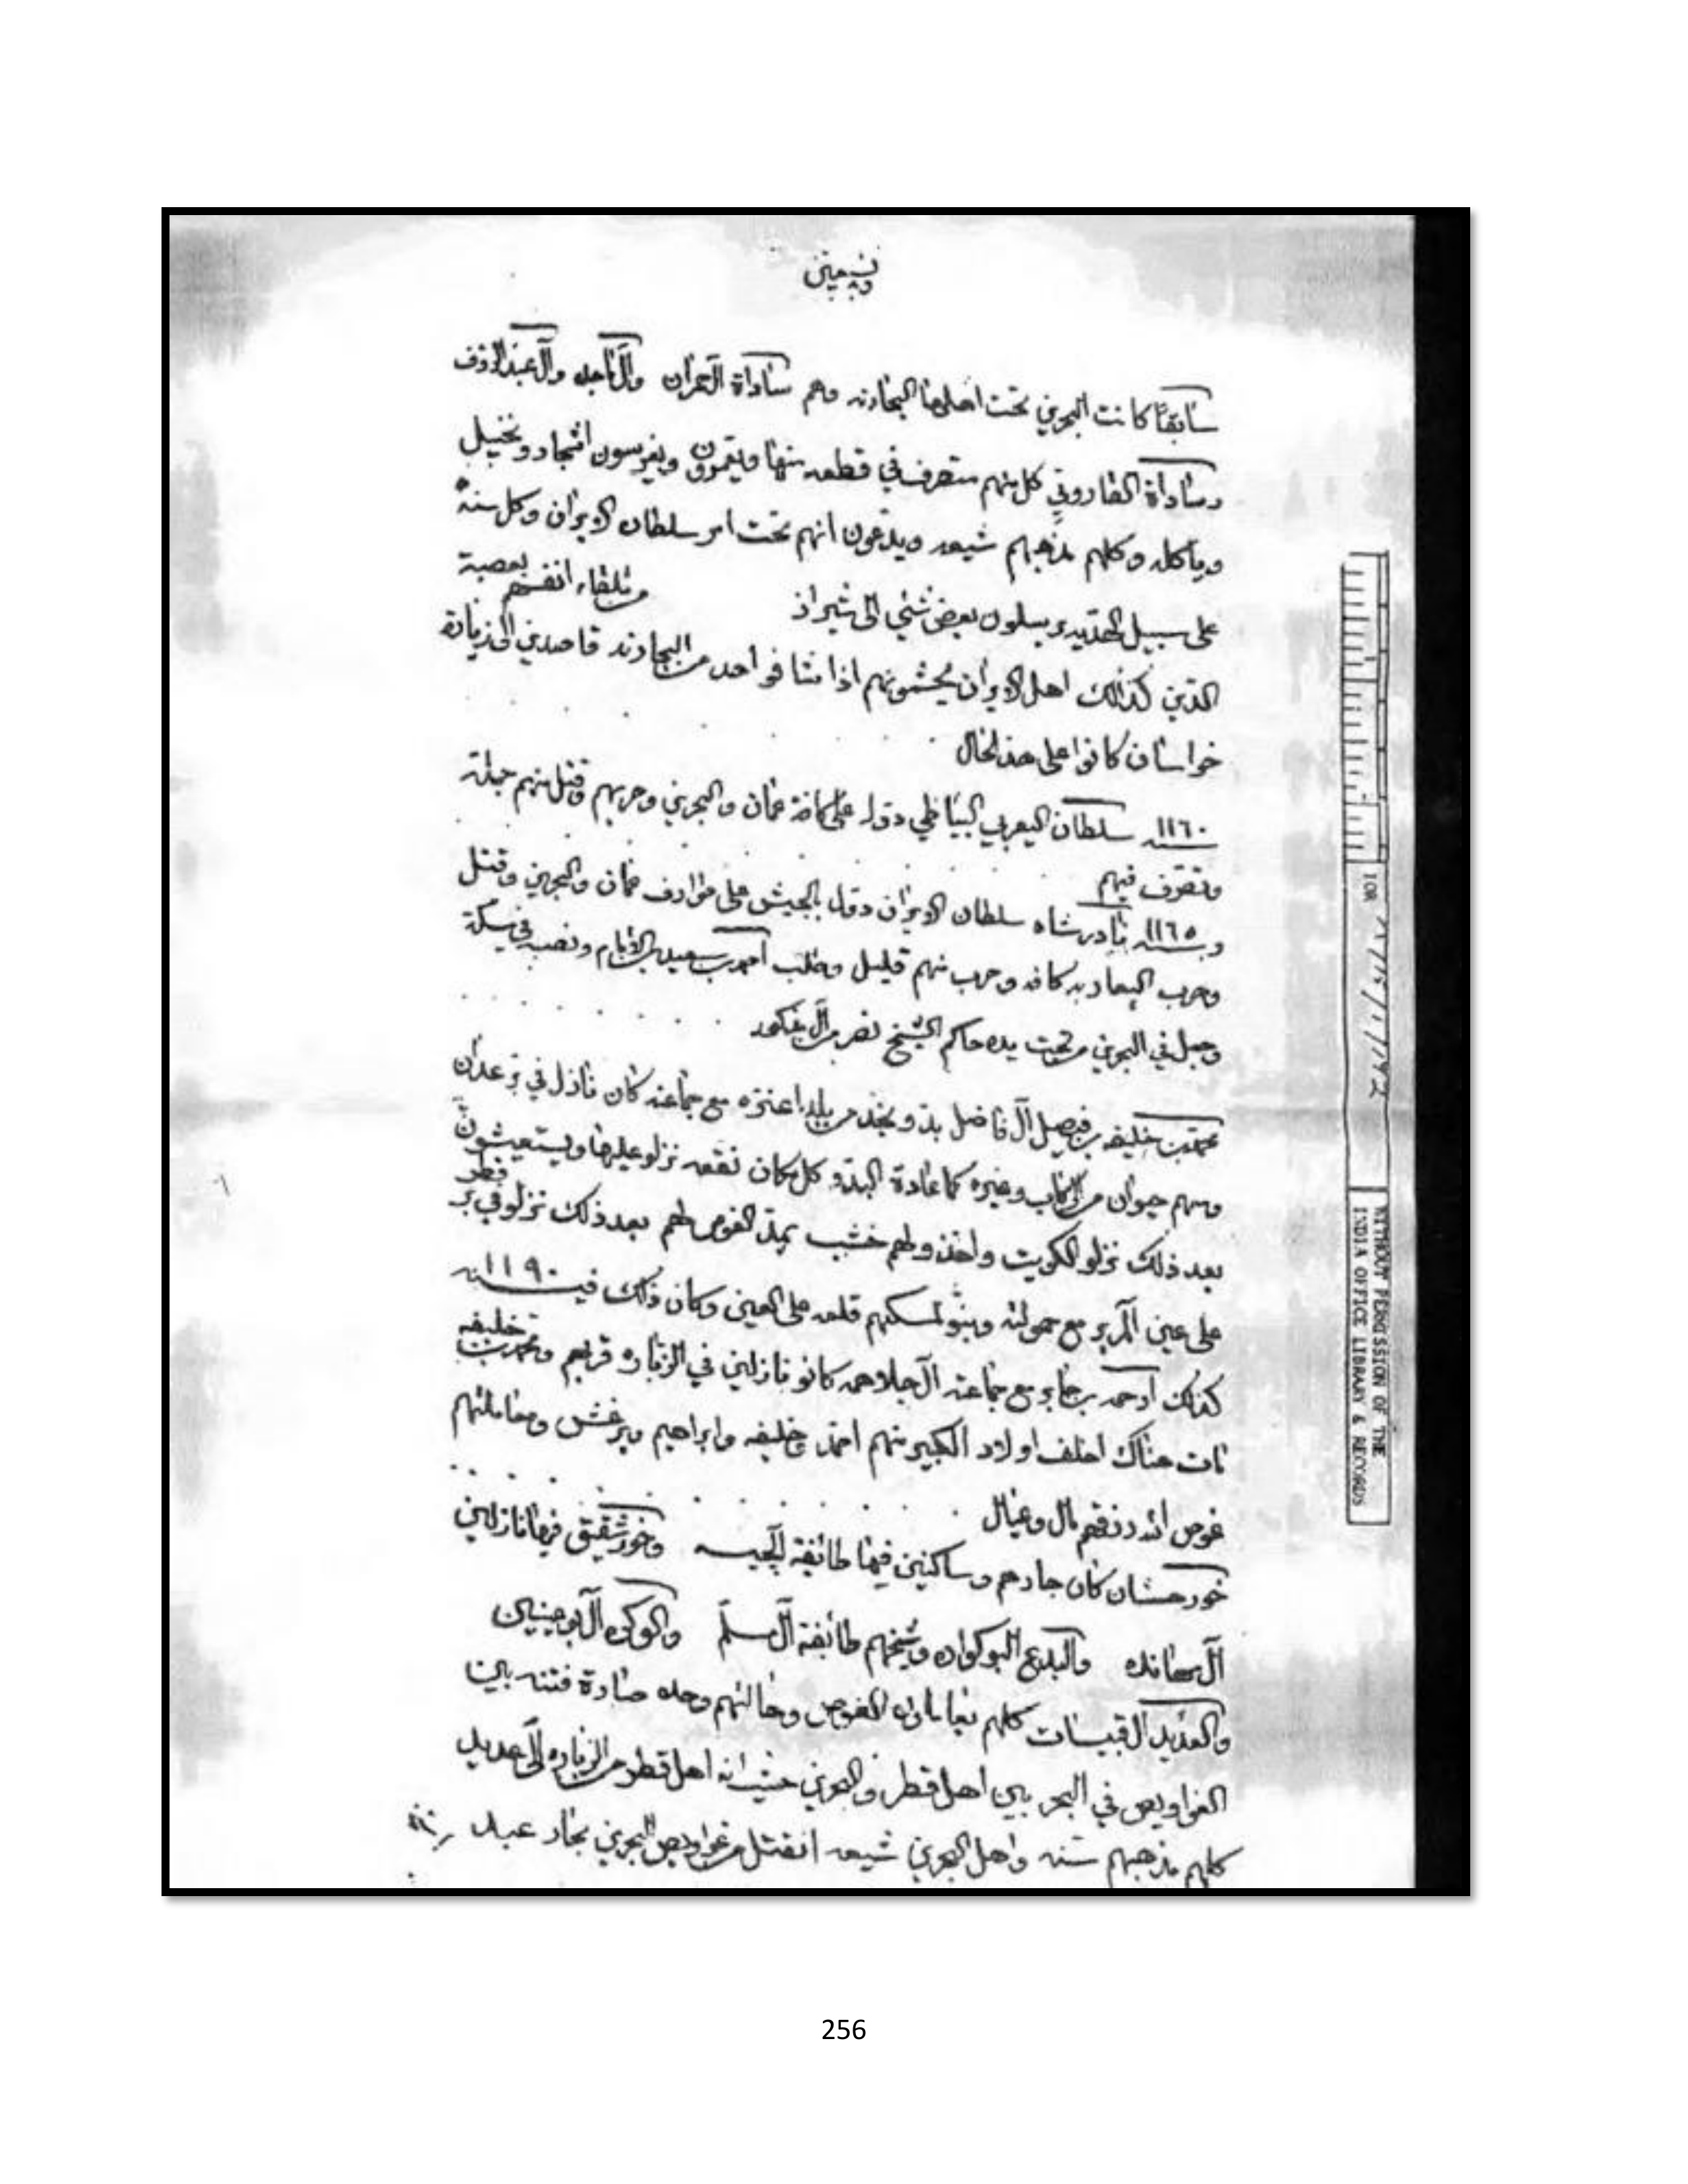 سابقًا كانت البحرين تحت اهلها البحارنه وهم ساداة آل عمران وآل ماجد وآل عبدالرؤف
وساداة القاروني كل منهم متصرف في قطعه منها ويقمون ويغرسون اشجار ونخيل
وياكله وكلهم مذهبهم شيعه ويدعون انهم تحت امر سلطان الايران وكل سنة
على سبيل الهديه يرسلون بعض شئي الى شيراز من تلقاء انفسهم بعصبية
الدين كذالك اهل الايران يحشمونهم اذا شافوا احد من البحارنه قاصدين الى زيارة
خراسان كانوا على هذلحال
سنه ١١٦٠ سلطان اليعربي البياظي دول على كافة عمان والبحرين وحربهم وقتل منهم جمله
وتصرف فيهم
وسنه ١١٦٥ نادر شاه سلطان الايران دول بالجيش على عمان والبحرين وقتل
وحرب اليعاربه كافه وهرب منهم قليل وطلب احمد بن سعيد الامام ونصبه في مسكة
وجعل في البحرين من تحت يده حاكم الشيخ نصر من آل مذكور
محمد بن خليفه بن فيصل آل فاضل بدو نجد من بلد اعنزه مع جماعته كان نازل في بر عدان
ومعهم حيوان من الركاب وغيره كما عادة البدو كل مكان نقعه نزلو عليها ويستعيشون
بعد ذلك نزلو الكويت واخذو لهم خشب يمد الغوص لهم بعد ذلك نزلو في بر قطر
على عين المرير مع حمولته وبنو لمسكنهم قلعه على العين وكان ذلك في سنه ١١٩٠
كذلك ارحمه بن جابر مع جماعته آل جلاهمه كانو نازلين في الزباره قربهم ومحمد بن خليفه
مات هناك اخلف اولاد الكبير منهم احمد وخليفه وابراهيم ومعاملتهم
غوص الله رزقهم مال وعيال
خور حسان كان جارهم وساكنين فيها طائفة وخور شقيق فيها نازلين
آل مهانده والبدع البو كواره وشيخهم طائفة آل مسلم والوكره آل بوعينين
والعديد القبيسات كلهم الغوص وحالتهم وحده صارة فتنه بين
الغواويص في البحر بين اهل قطر والبحرين حيث انه اهل قطر من الزباره الى عديد
كلهم مذهبهم سنه واهل البحرين شيعه انقتل من غواويص البحرين
IOR
WITHOUT PERMISSION OF THE
INDIA OFFICE LIBRARY & RECORDS
256